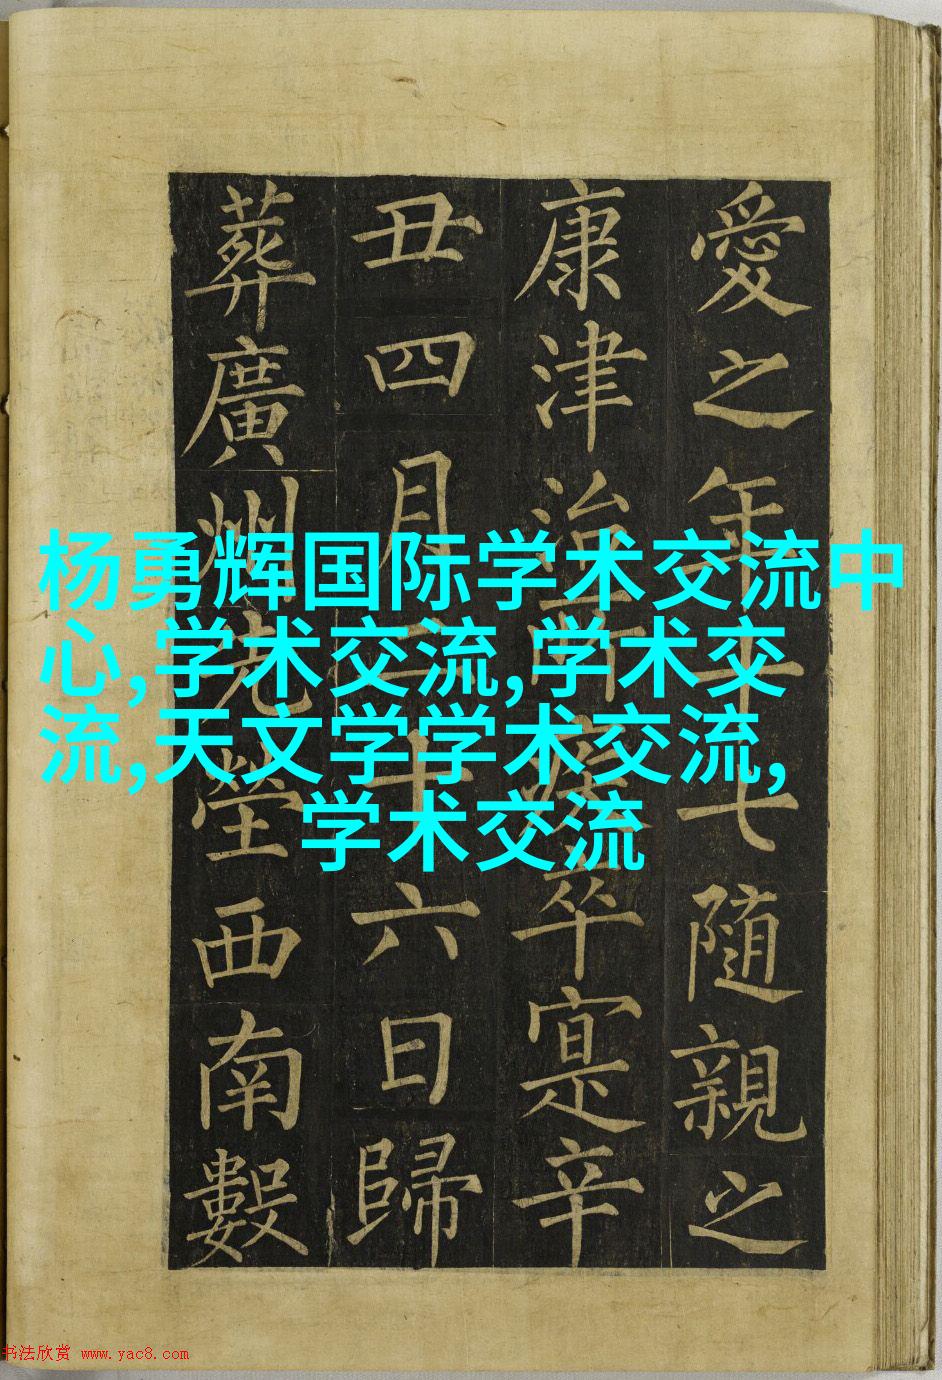 愛之年十七隨親之
康津治所卒寔辛
丑四月二十六日歸
葬廣州先塋西南數
杨勇辉国际学术交流中
心,学术交流,学术交
流,天文学学术交流,
学术交流
书法欣赏 www.yac8.com